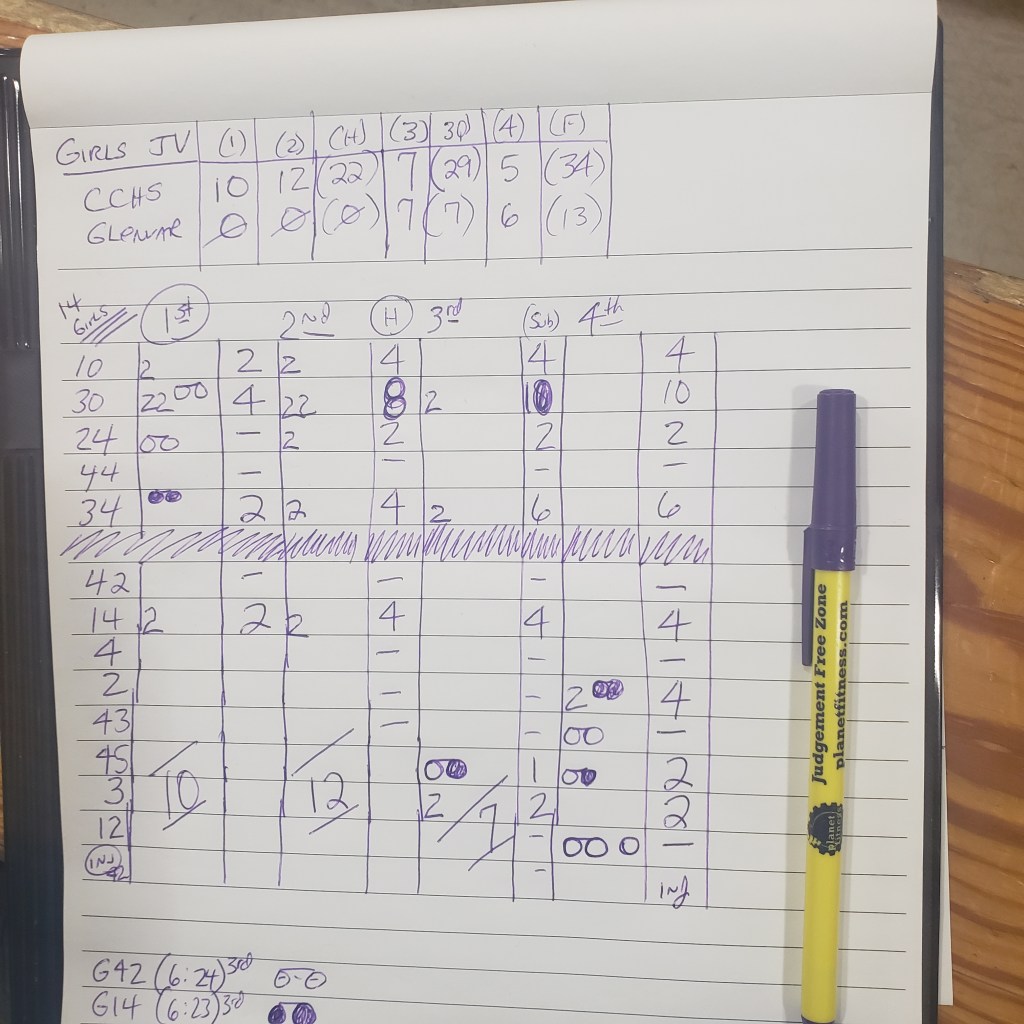 GIRLS JV (1) (2) (H) (3) 3Q (4) (F)
CCHS 10 12 (22) 7 (29) 5 (34)
GLENVAR 0 0 (0) 7 (7) 6 (13)
14 GIRLS 1st 2nd H 3rd (Sub) 4th
10 2 2 2 4 4 4
30 22 00 4 22 8 2 10 10
24 00 - 2 2 2 2
44 - - - -
34 2 2 4 2 6 6
42 - - - -
14 2 2 2 4 4 4
4 - - -
2 - - 2 4
43 - - 00 -
45 0 1 0 2
3 10 12 2 7 2 2
12 - 00 0 -
INJ 42 - INJ
G42 (6:24) 3rd 0-0
G14 (6:23) 3rd
Judgement Free Zone
planetfitness.com
planet fitness